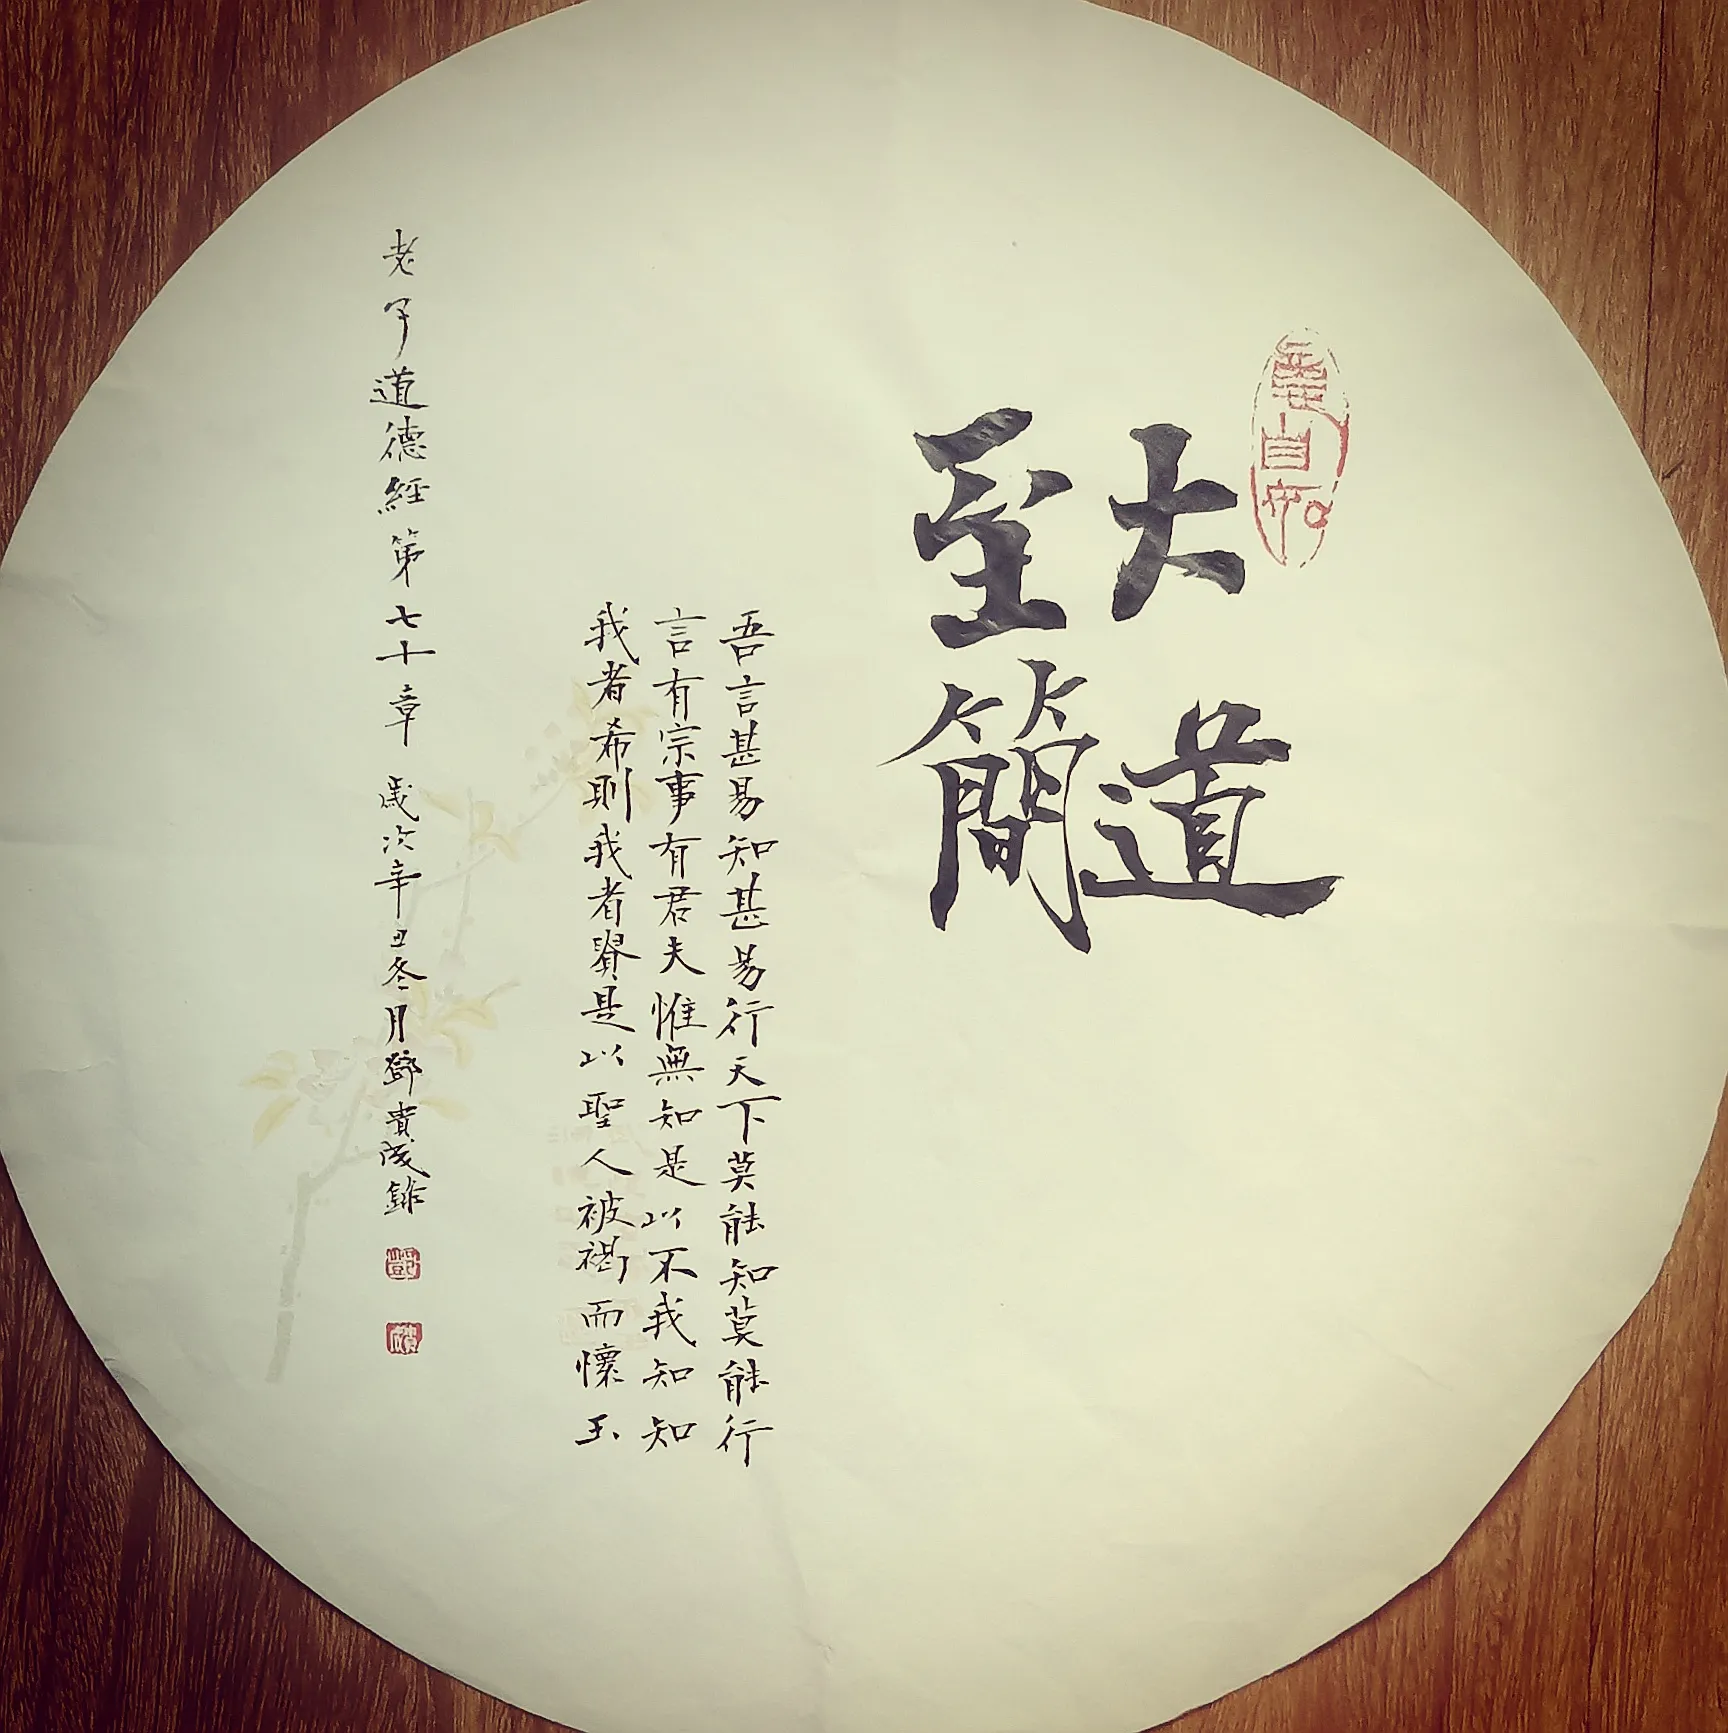 自知
大道
至簡
吾言甚易知甚易行天下莫能知莫能行
言有宗事有君夫惟無知是以不我知知
我者希則我者賢是以聖人被褐而懷玉
老子道德經第七十章 歲次辛丑冬月鄧貴成錄
鄧